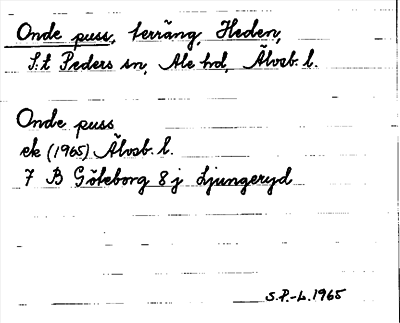 Onde puss, terräng, Heden,
S:t Peders sn, Ale hd, Älvsb. l.
Onde puss
ek (1965) Älvsb. l.
7 B Göteborg 8 j Ljungeryd
S.P.-L. 1965